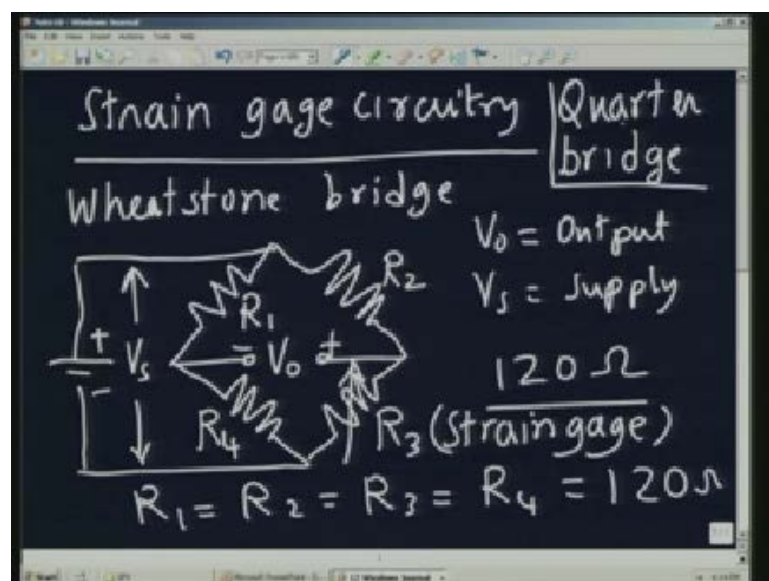 Strain gage circuitry
Quarter
bridge
Wheatstone bridge
V₀ = Output
Vₛ = Supply
R₁
R₂
+
-
Vₛ
- V₀ +
120 Ω
R₄
R₃ (Strain gage)
R₁ = R₂ = R₃ = R₄ = 120Ω